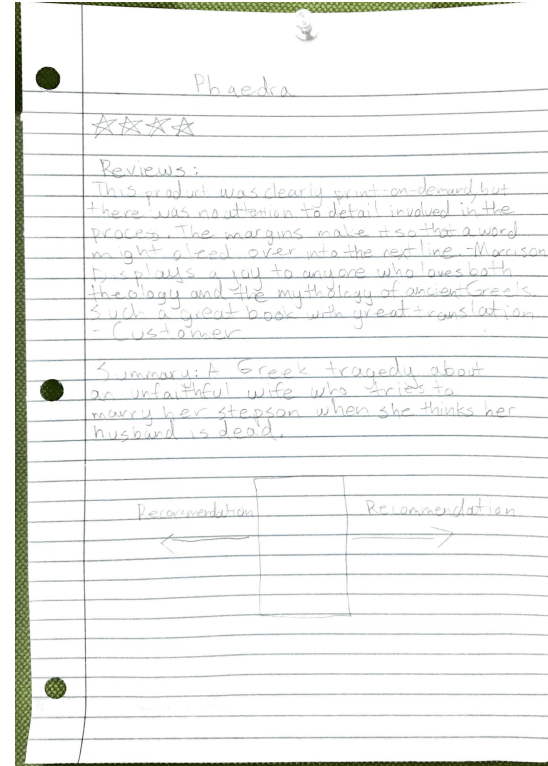 Phaedra
Reviews:
This product was clearly print-on-demand, but
there was no attention to detail involved in the
process. The margins make it so that a word
might bleed over into the next line. -Morrison
Displays a joy to anyone who loves both
theology and the mythology of ancient Greeks.
Such a great book with great translation
- Customer
Summary: A Greek tragedy about
an unfaithful wife who tries to
marry her stepson when she thinks her
husband is dead.
Recommendation Recommendation